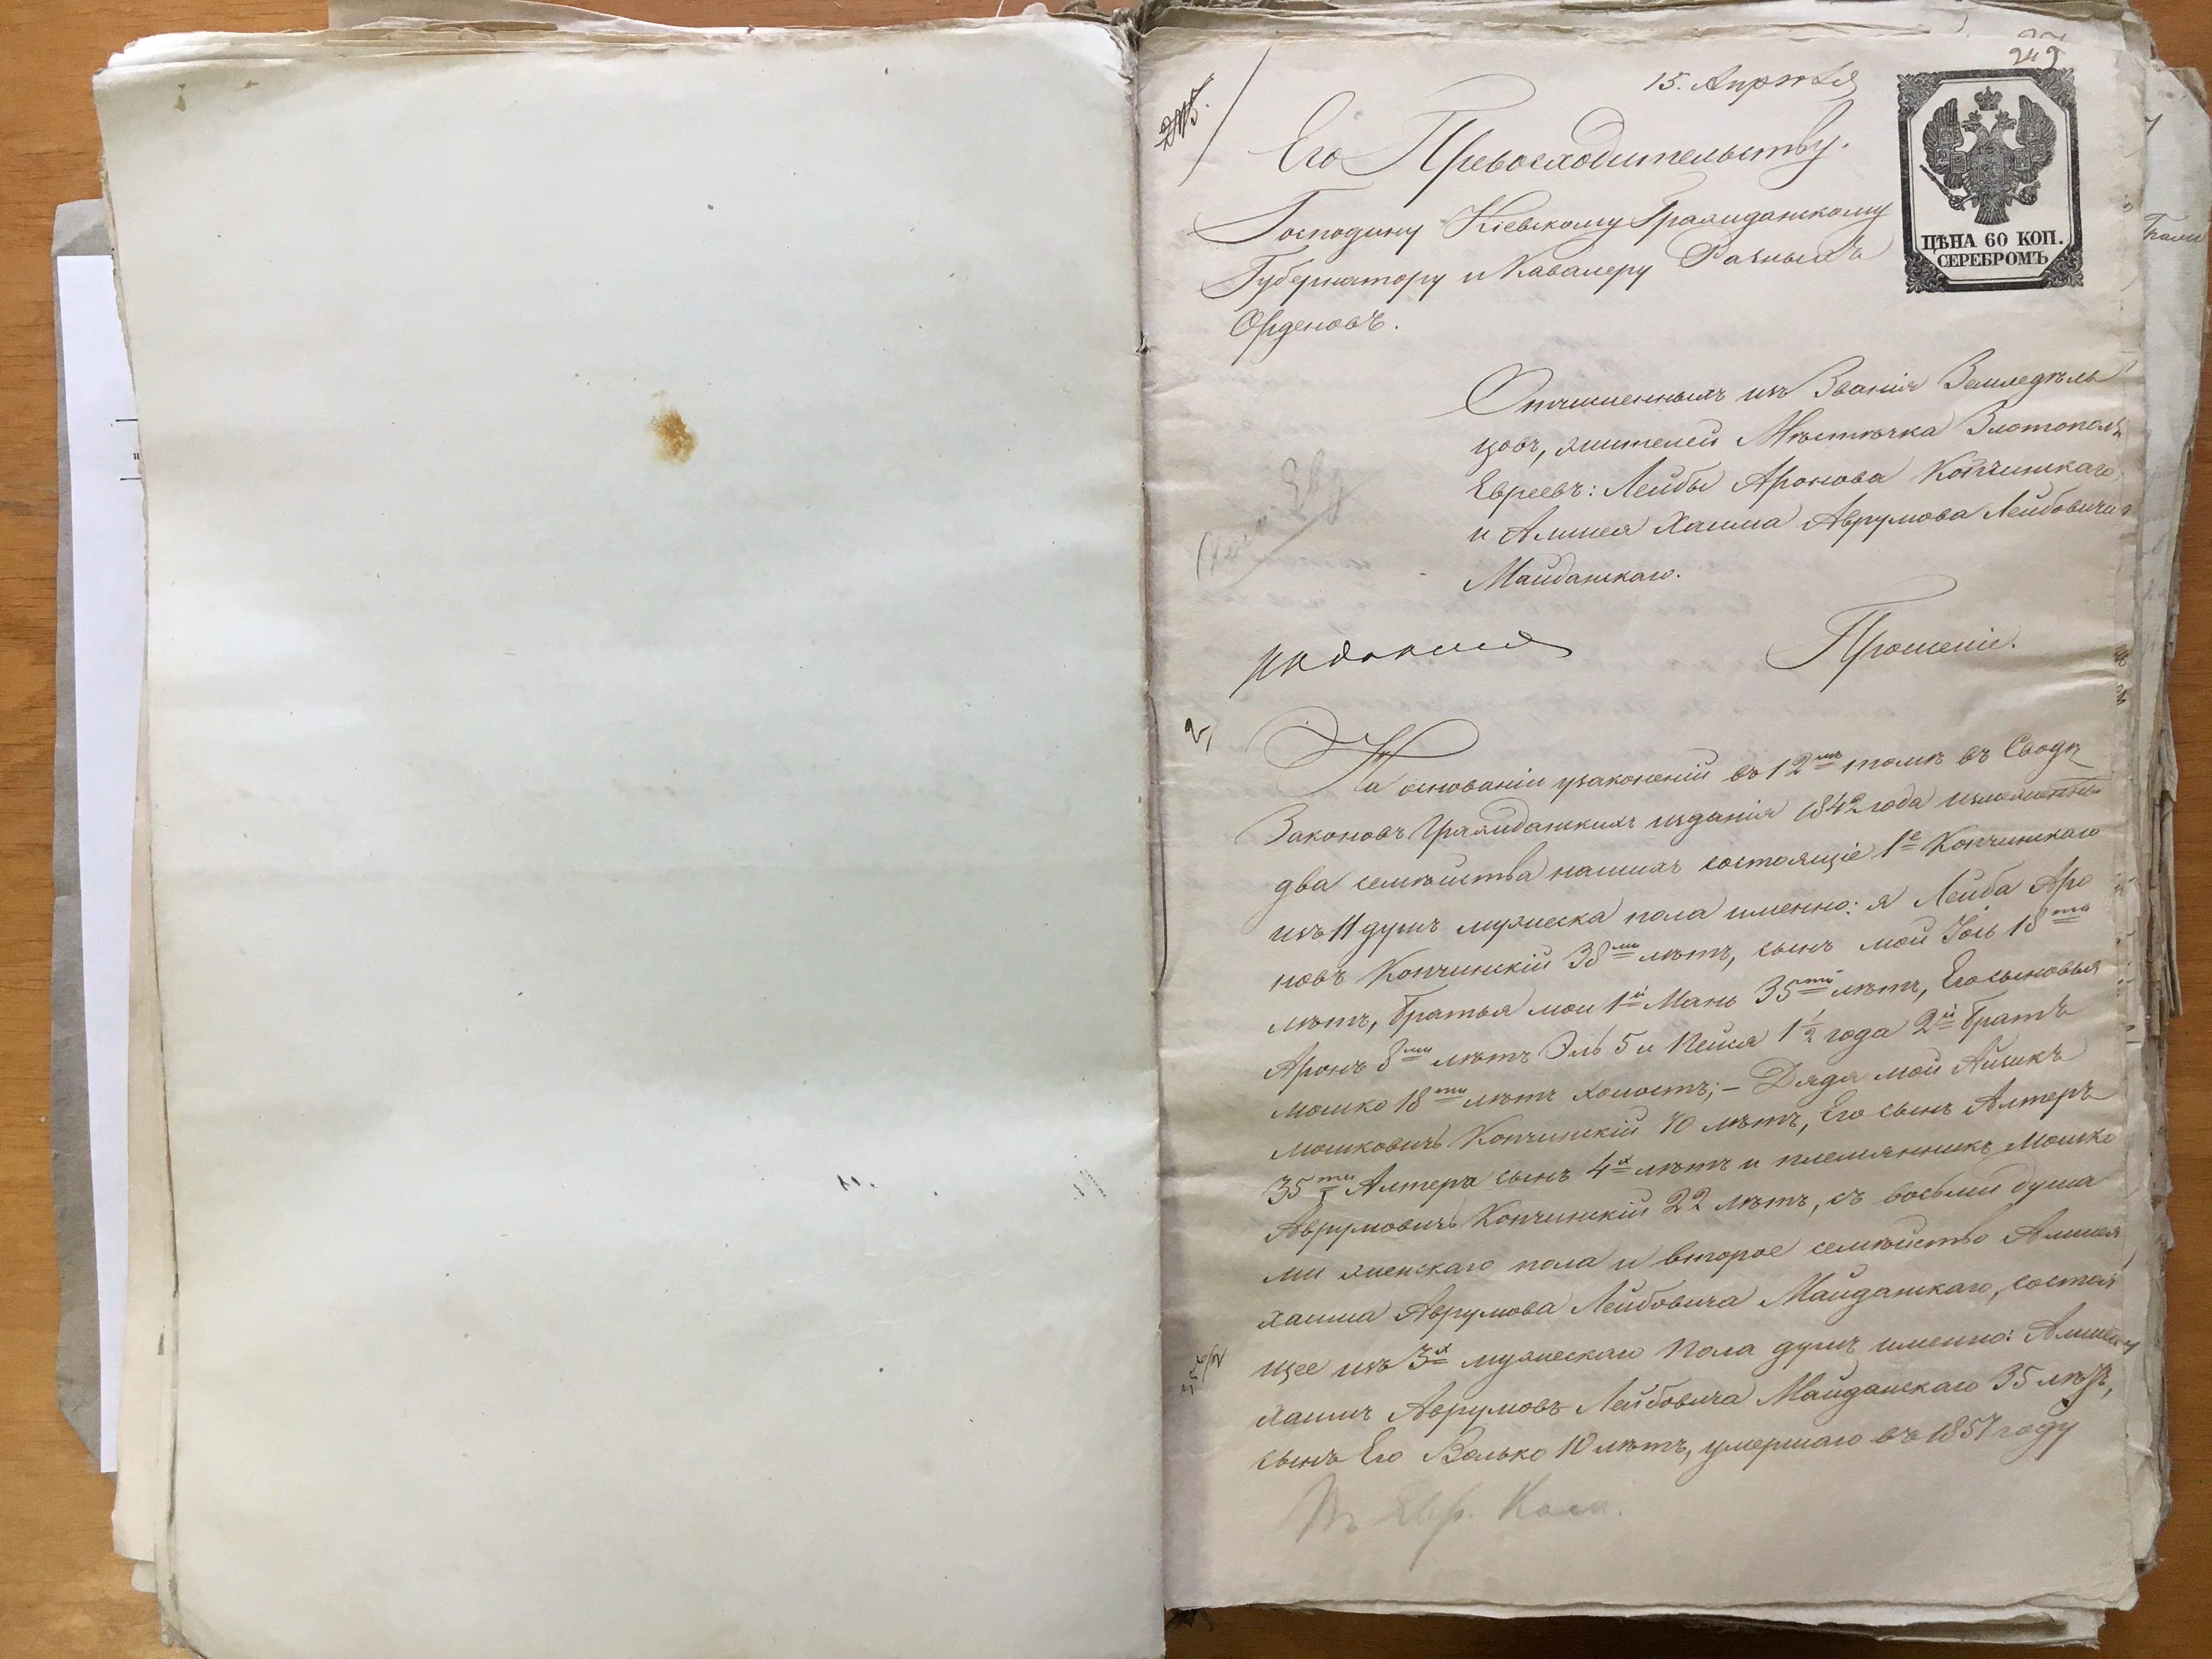 249
15. Апрѣля
ЦѢНА 60 КОП.
СЕРЕБРОМЪ
Его Превосходительству.
Господину Кіевскому Гражданскому
Губернатору и Кавалеру Разныхъ
Орденовъ.
Отчисленныхъ изъ Званія Земледѣль
цовъ, жителей Мѣстѣчка Златополя
Евреевъ: Лейбы Аронова Копчинскаго
и Алшея Хаима Аврумова Лейбовича
Майданскаго.
Прошеніе.
2,
На основаніи узаконеній въ 12мъ томѣ въ Сводѣ
Законовъ Гражданскихъ изданія 1842 года изложенны
два семѣйства нашихъ состоящіе 1е Копчинскаго
изъ 11 душъ мужеска пола именно: я Лейба Аро
новъ Копчинскій 38ми лѣтъ, сынъ мой Іось 18ти
лѣтъ, братья мои 1й Мань 35ти лѣтъ, Его сыновья
Аронъ 8ми лѣтъ Эль 5 и Пейся 1 1/2 года 2й братъ
мошко 18ти лѣтъ холостъ; - Дядя мой Айзикъ
мошковичъ Копчинскій 70 лѣтъ, Его сынъ Алтеръ
35ти Алтера сынъ 4х лѣтъ и племянникъ Мошко
Аврумовичъ Копчинскій 22 лѣтъ, съ восьми душа
ми женскаго пола и второе семѣйство Алшея
хаима Аврумова Лейбовича Майданскаго, состоя
щее изъ 3х мужескаго Пола душъ именно: Алшей
хаимъ Аврумовъ Лейбовича Майданскаго 35 лѣтъ,
сынъ Его Волько 10 лѣтъ, умершаго въ 1857 году
Въ Евр. Ком.